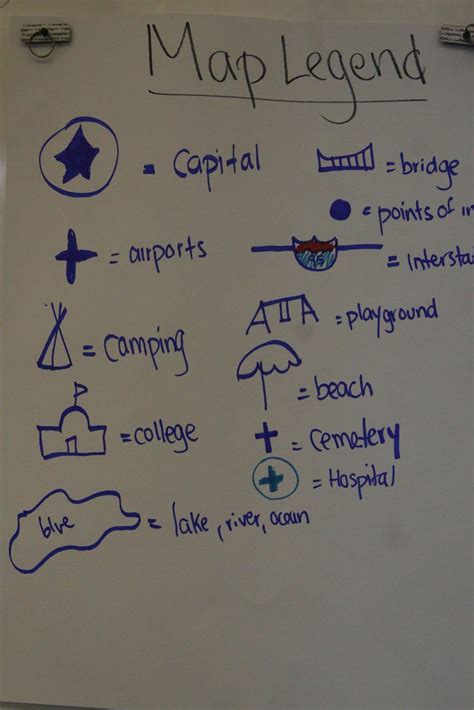 Map Legend
= Capital
= bridge
= points of in
= airports
= Intersta
= Camping
= playground
= beach
= college
= Cemetery
= Hospital
blue = lake, river, ocean